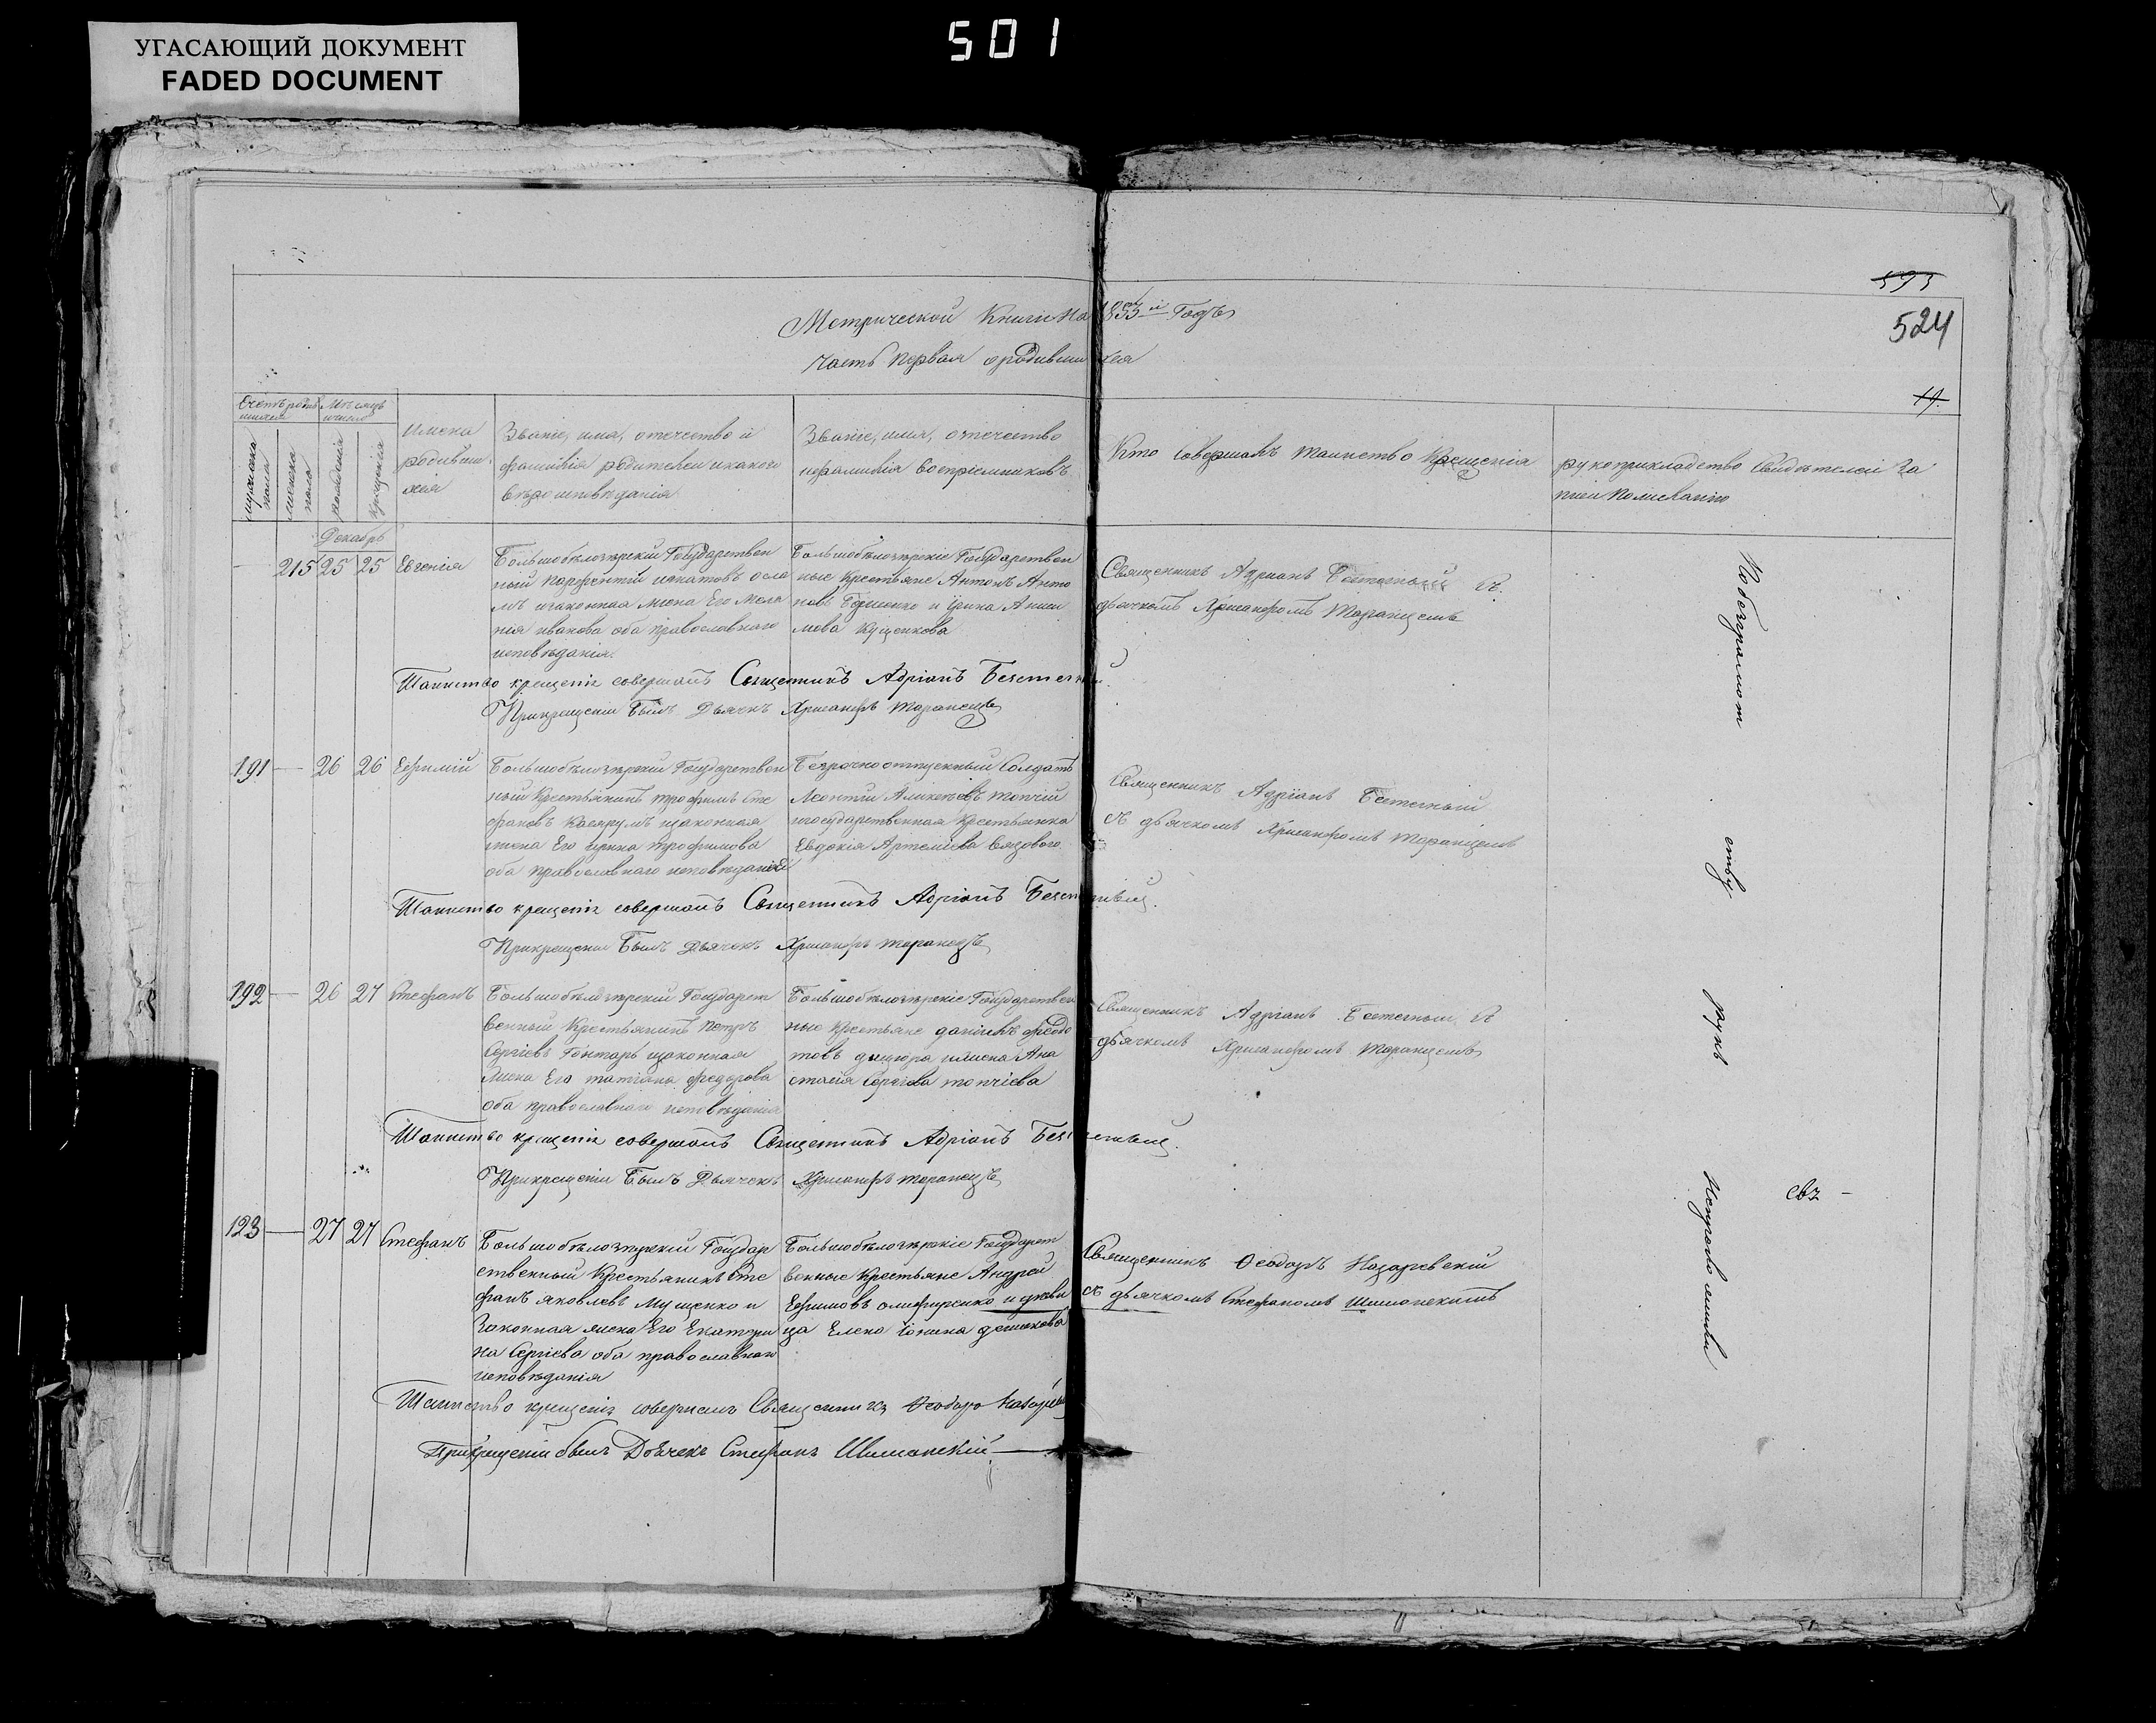 501
УГАСАЮЩИЙ ДОКУМЕНТ
FADED DOCUMENT
593
524
19.
Метрической Книги на 1853й Годъ
часть первая о родившихся
Счетъ родившихся
Мѣсяцъ и число
мужеска пола
женска пола
рожденія
крещенія
Имена
родивших
хся
Званіе, имя, отечество и
фамилія родителей и какого
вѣроисповѣданія
Званіе, имя, отчество
и фамилія воспріемниковъ
Кто совершалъ таинство крещенія
рукоприкладство свидѣтелей за
писи по желанію
Декабрь
215 25 25 Евгенія
Большобѣлозѣрскій Государствен
ный
и законная жена Его Мела
нія иванова оба православнаго
исповѣданія.
Большобѣлозѣрскіе Государствен
ные Крестьяне Антонъ Анто
новъ и Ірина Аниси
мова Куценкова
Священникъ Адрианъ Безсмертный съ
дьячкомъ Хрисанфомъ Торанцемъ
Таинство крещенія совершалъ Священникъ Адріанъ Безсмертный.
При крещеніи Былъ Дьячекъ Хрисанфъ Торанецъ
191 — 26 26 Евфимій
Большобѣлозѣрскій Государствен
ный Крестьянинъ трофимъ Сте
фановъ и законная
жена Его ирина трофимова
оба православнаго исповѣданія
Безсрочноотпускный Солдатъ
Леонтій топчій
и государственная Крестьянка
Евдокія Артеміева Вязового.
Священникъ Адріанъ Безсмертный
съ дьячкомъ Хрисанфомъ Торанцемъ
Таинство крещенія совершалъ Священникъ Адріанъ Безсмертный.
При крещеніи Былъ Дьячекъ Хрисанфъ Торанецъ
192 — 26 27 Стефанъ
Большобѣлозѣрскій Государст
венный Крестьянинъ Петръ
Сергіевъ Гонтарь и законная
жена Его татіана федорова
оба православнаго исповѣданія
Большобѣлозѣрскіе Государствен
ные Крестьяне даніилъ федо
товъ и жена Ана
стасія Сергіева топчіева
Священникъ Адріанъ Безсмертный съ
дьячкомъ Хрисанфомъ Торанцемъ
Таинство крещенія совершалъ Священникъ Адріанъ Безсмертный.
При крещеніи Былъ Дьячекъ Хрисанфъ Торанецъ
123 — 27 27 Стефанъ
Большобѣлозѣрскій Государ
ственный Крестьянинъ Сте
фанъ яковлевъ Мущенко и
Законная жена Его Екатери
на Сергіева оба православнаго
исповѣданія
Большобѣлозѣрскіе Государст
венные Крестьяне Андрей
Ефимовъ олифиренко и дѣви
ца Елена Іонина
Священникъ Ѳеодоръ Назаревскій
съ дьячкомъ Стефаномъ Шиманскимъ
Таинство крещенія совершалъ Священникъ Ѳеодоръ
При крещеніи былъ Дьячекъ Стефанъ Шиманскій
По безграмот
ству
рукъ
Неприложили
свз —